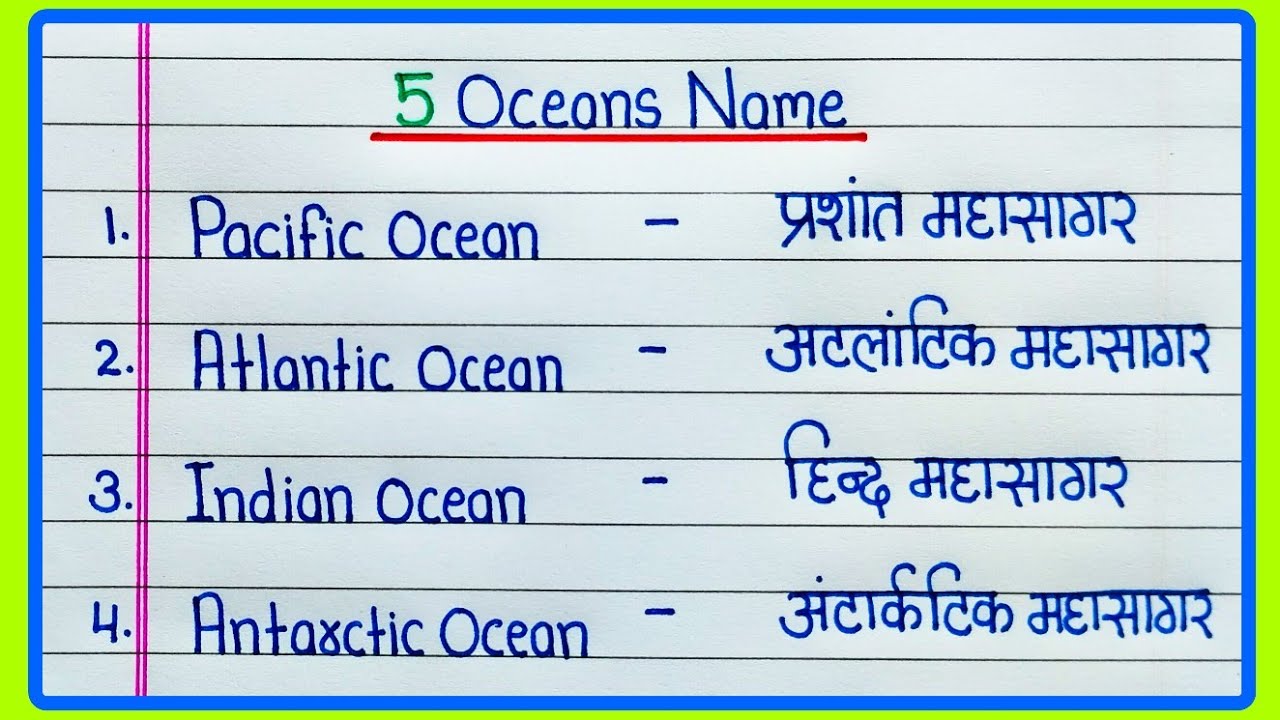 5 Oceans Name
1. Pacific Ocean - प्रशांत महासागर
2. Atlantic Ocean - अटलांटिक महासागर
3. Indian Ocean - हिन्द महासागर
4. Antarctic Ocean - अंटार्कटिक महासागर